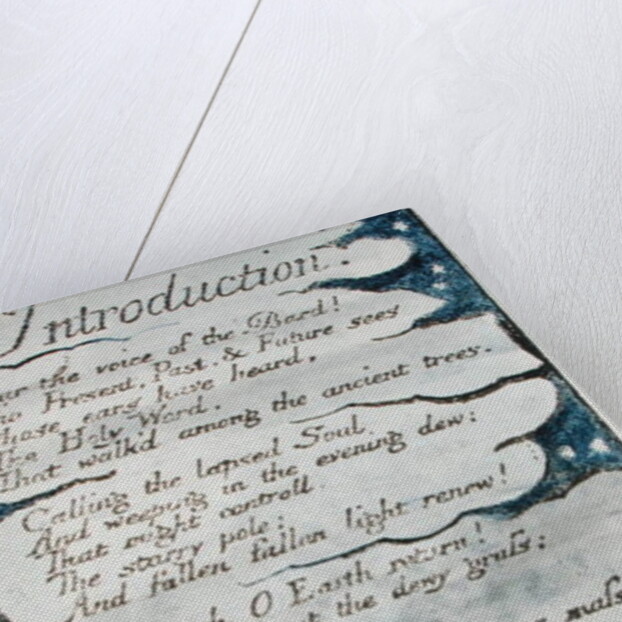 Introduction.
the voice of the Bard!
Present, Past, & Future sees
ears have heard,
The Holy Word,
That walk'd among the ancient trees.
Calling the lapsed Soul
And weeping in the evening dew:
That might controll
The starry pole;
And fallen fallen light renew!
O Earth return!
the dewy grass;